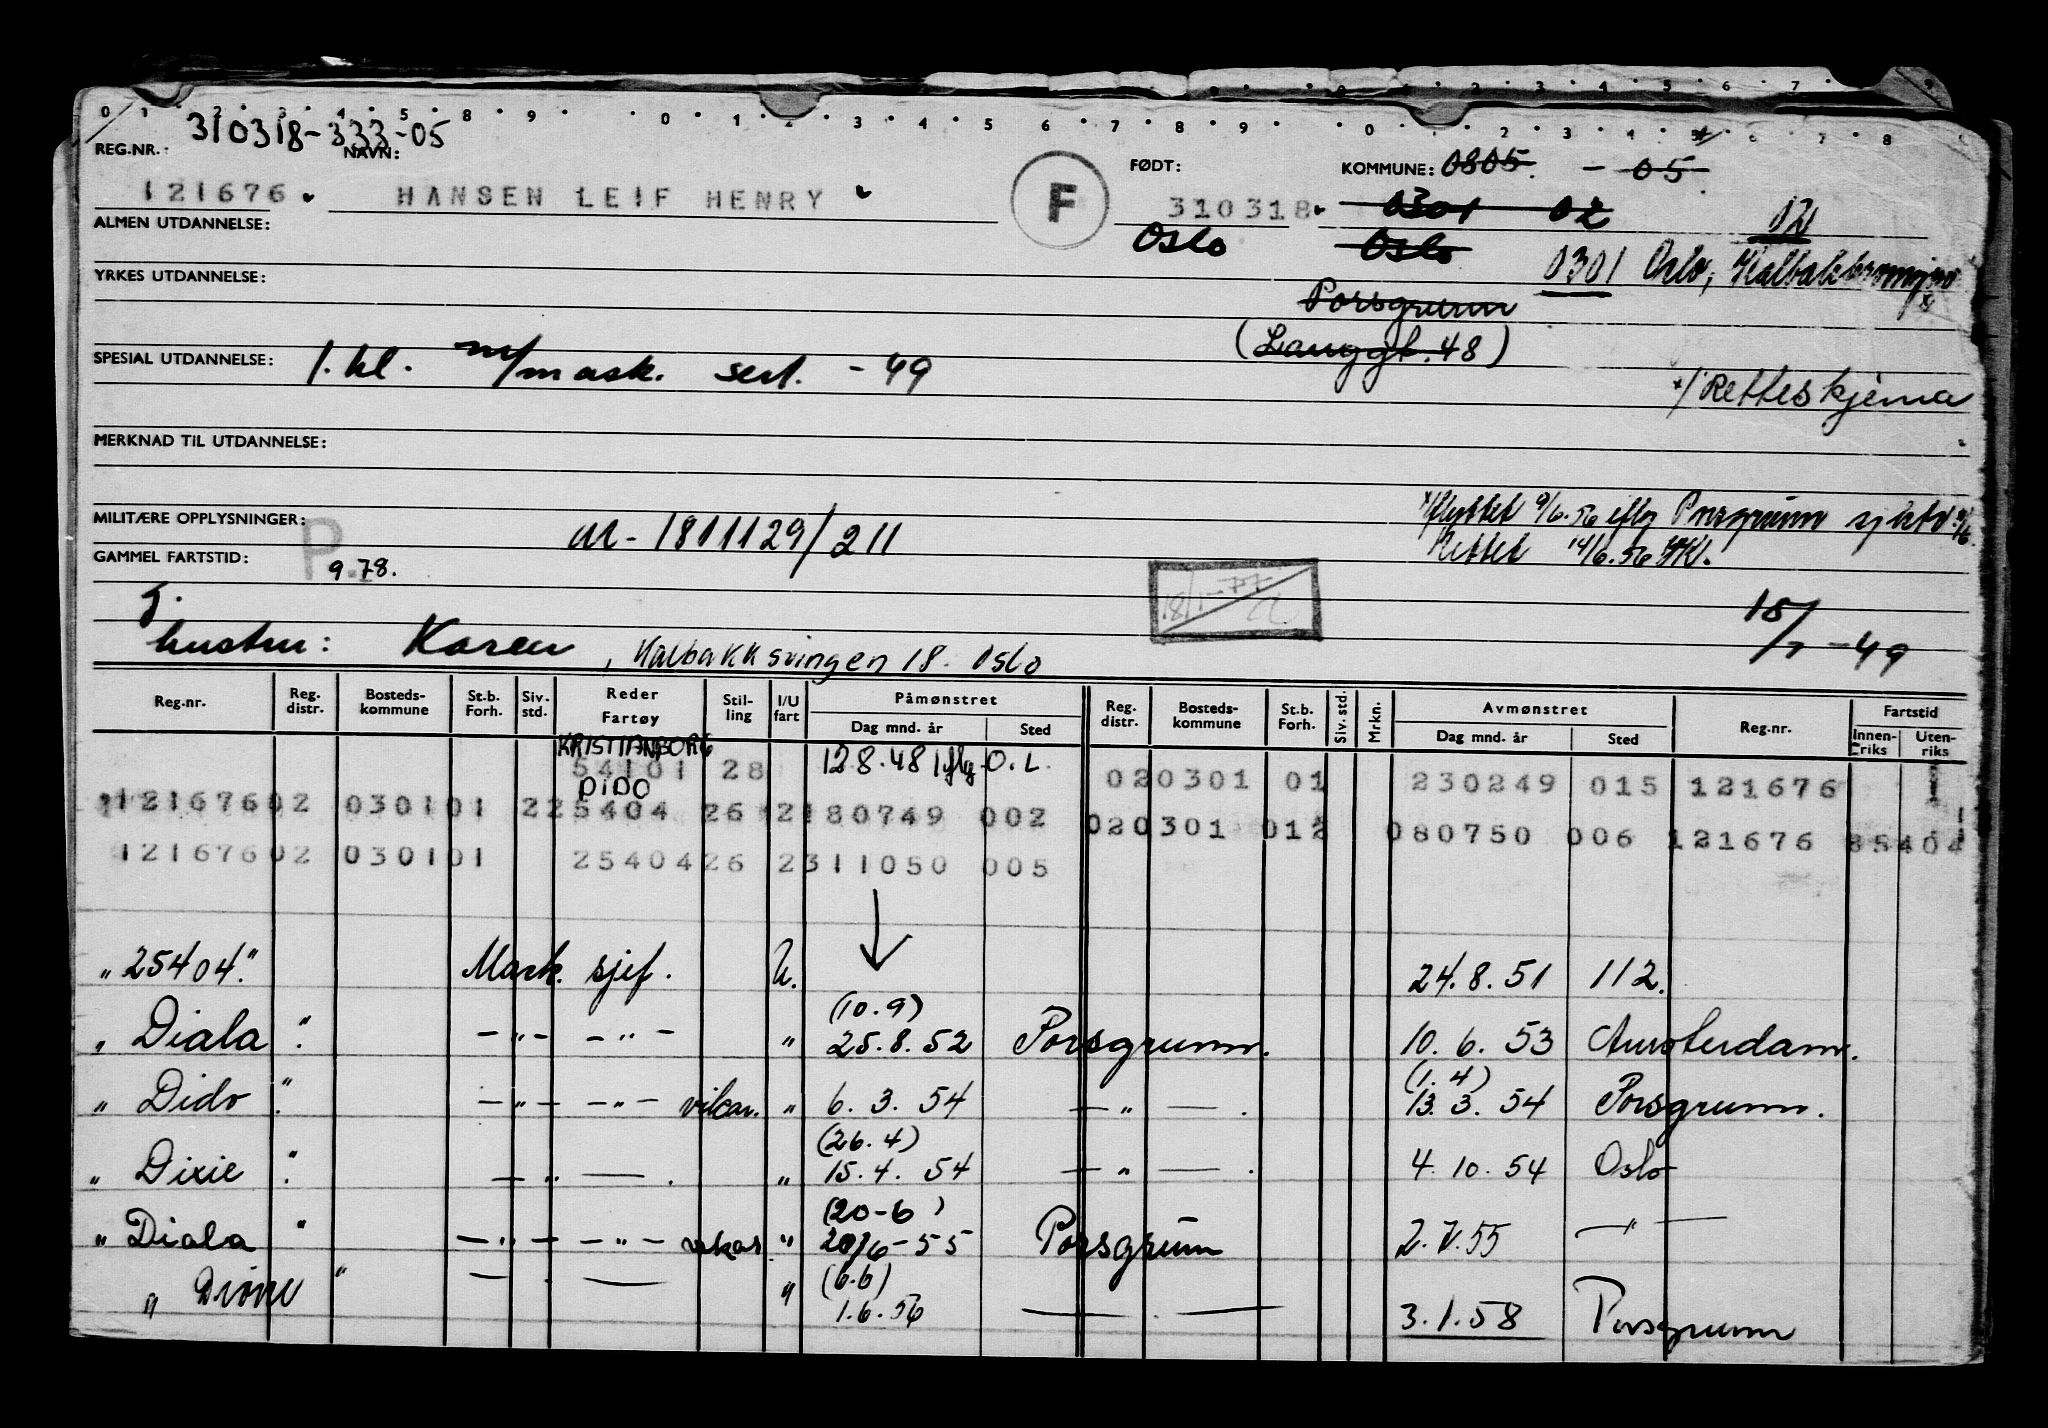 310318-333-05
REG.NR.: NAVN: FØDT: KOMMUNE: 0805. - 05.
121676 HANSEN LEIF HENRY F 310318 0301 02 02
ALMEN UTDANNELSE: Oslo Oslo 0301 Oslo,
YRKES UTDANNELSE: Porsgrunn
(Langgt. 48)
SPESIAL UTDANNELSE: 1. kl. m/mask. sert. - 49
x/ Retteskjema
MERKNAD TIL UTDANNELSE:
x/flyttet 9/6.56 iflg Porsgrunn
MILITÆRE OPPLYSNINGER: M-1811129/211
Rettet 14/6.56
GAMMEL FARTSTID: P. 9.78.
18/1-77
g. hustru: Karen, Kalbakksvingen 18. Oslo
15/7-49
Reg.nr. Reg. distr. Bosteds- kommune St.b. Forh. Siv. std. Reder Fartøy Stil- ling I/U fart Påmønstret Dag mnd. år Sted Reg. distr. Bosteds- kommune St.b. Forh. Siv. std. Mrkn. Avmønstret Dag mnd. år Sted Reg.nr. Fartstid Innen- riks Uten- riks
KRISTIANBORG
54101 28 12 8.48 iflg. O.L. 020301 01 230249 015 121676
DIDO
12167602 030101 225404 26 2180749 002 020301 012 080750 006 121676 85404
12167602 030101 25404 26 2311050 005
"25404" Mask. sjef. U. 24.8.51 112.
(10.9)
" Diala " - " - - " - " 25.8.52 Porsgrunn. 10.6.53 Amsterdam.
(1.4)
" Dido " - " - - " - vikar. " 6.3.54 - " - . 13.3.54 Porsgrunn.
(26.4)
" Dixie " - " - . " 15.4.54 - " - . 4.10.54 Oslo
(20-6)
" Diala " - " - - " - vikar " 20/6-55 Porsgrunn 2.7.55 - " -
(6.6)
" Dione " - . - " 1.6.56 - . - 3.1.58 Porsgrunn